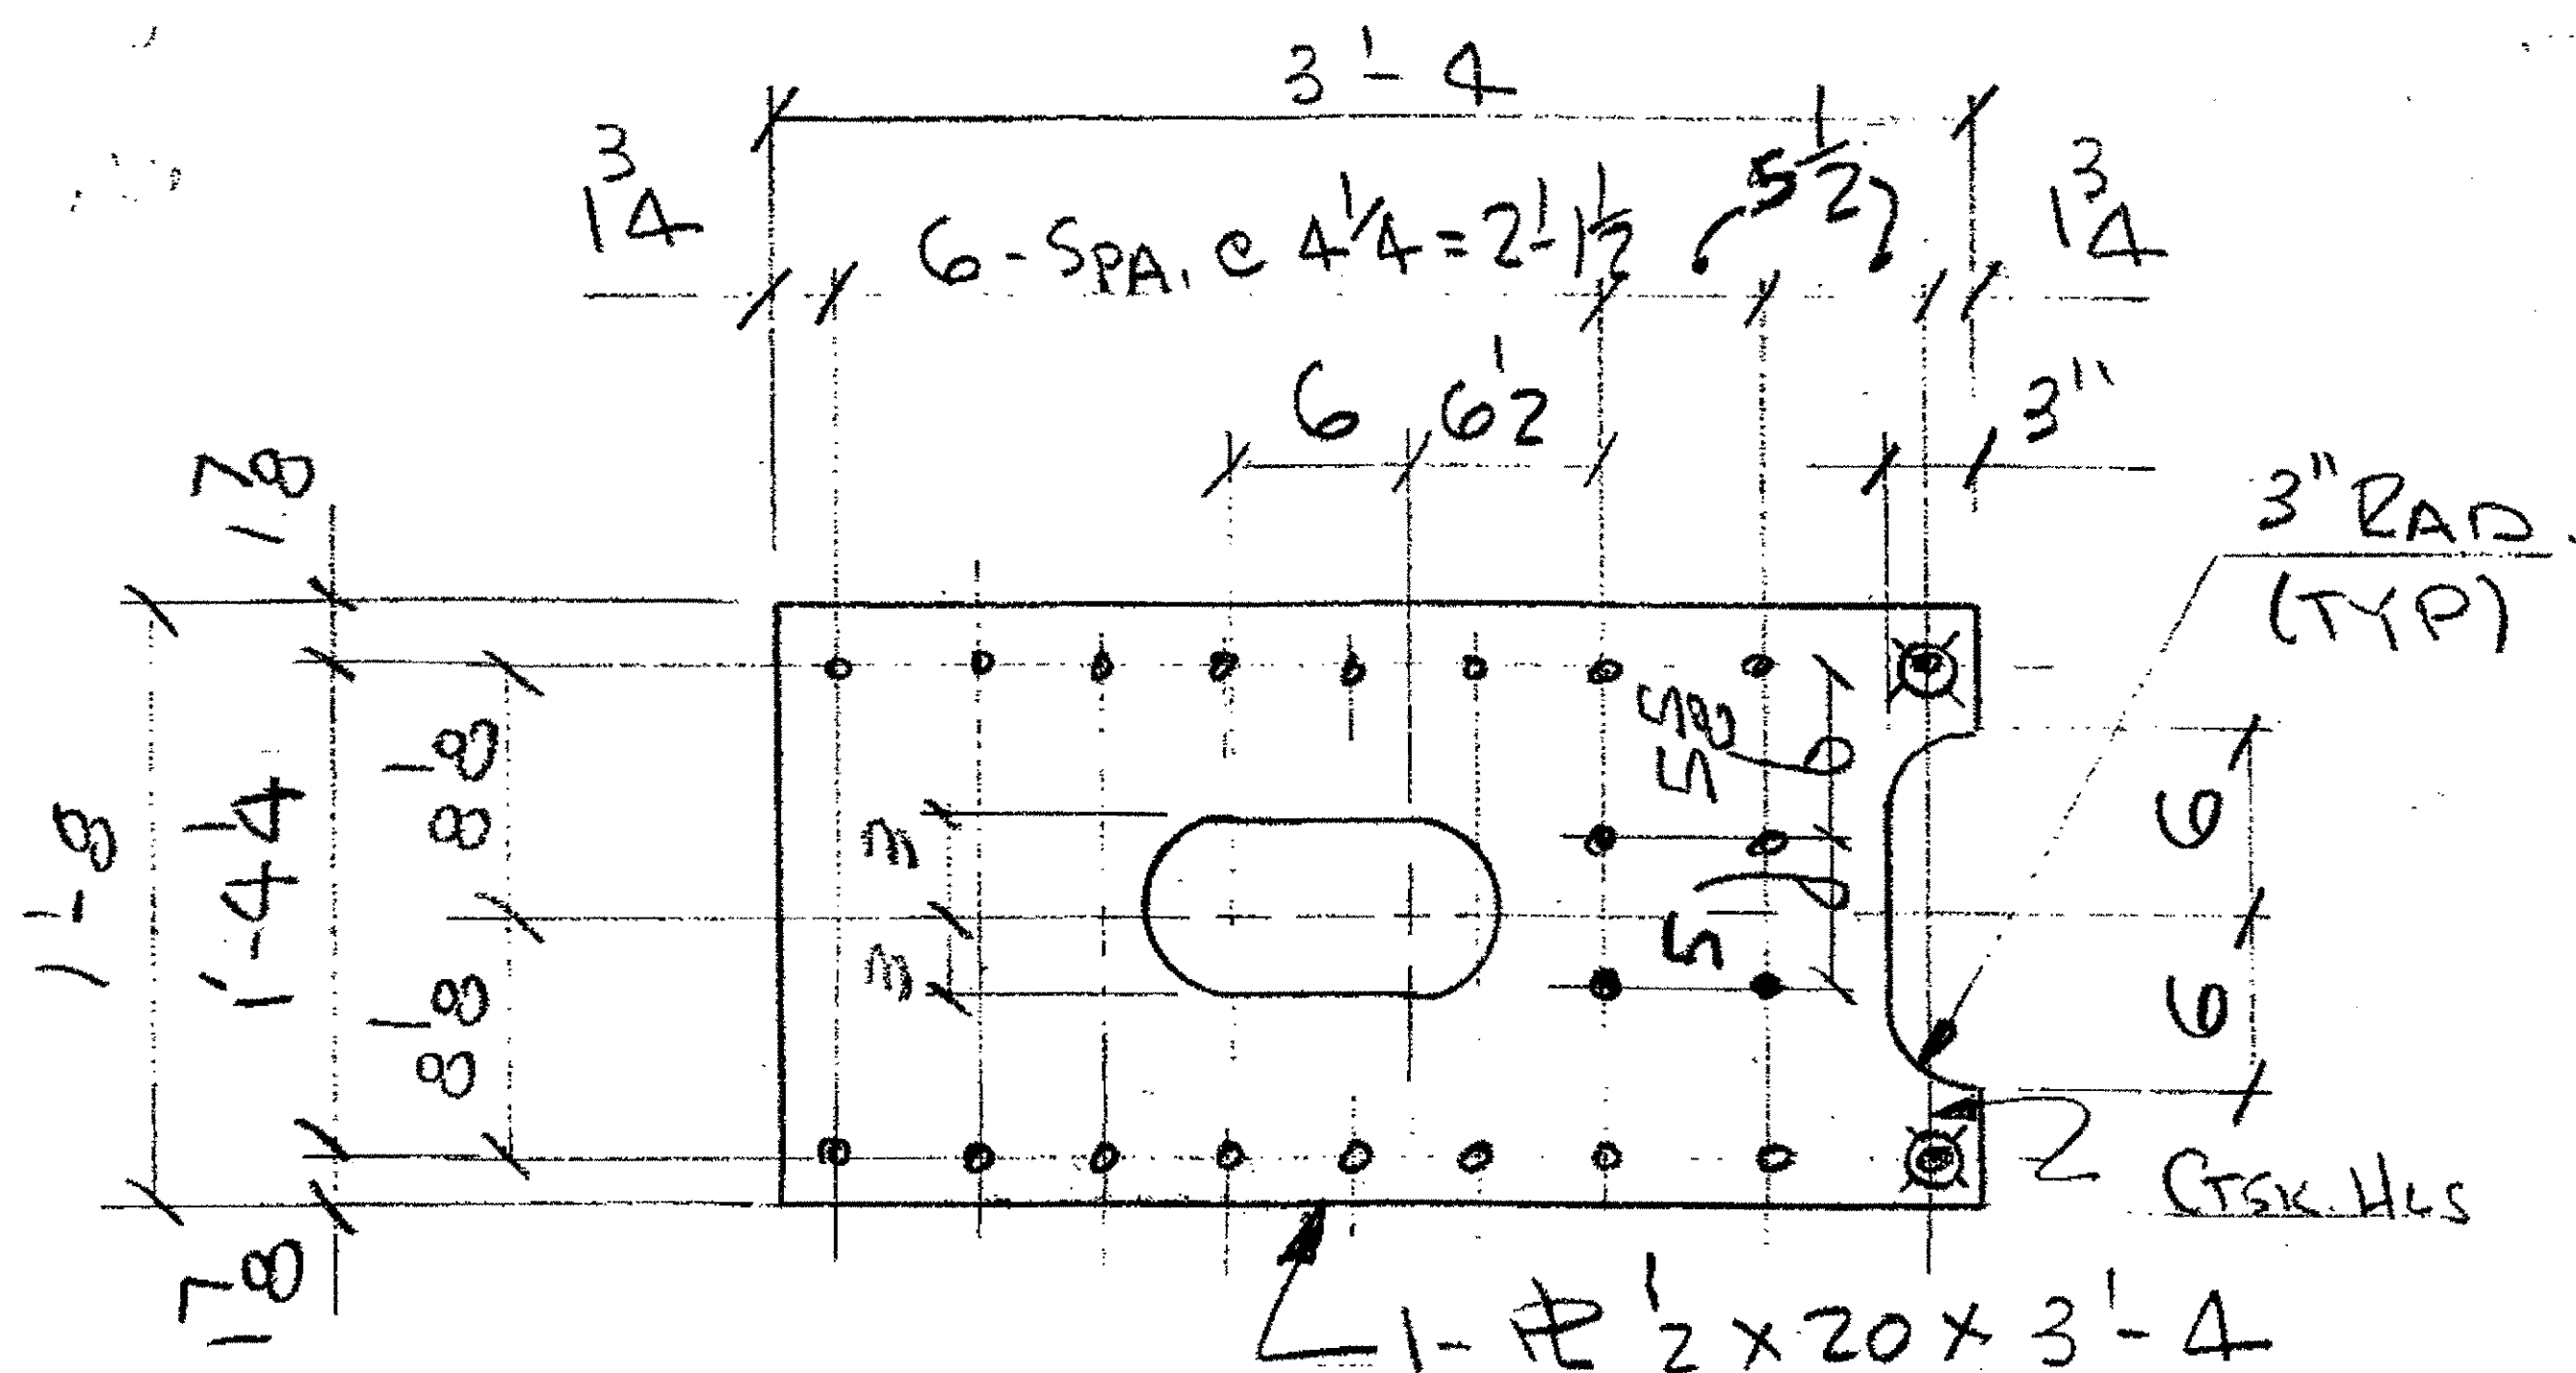 3'-4
1 3/4
6-SPA. @ 4 1/4 = 2'-1 1/2
5 1/2
1 3/4
6
6 1/2
3"
3" RAD.
(TYP)
1 7/8
1'-8
1'-4 1/4
8 1/8
8 1/8
1 7/8
3
3
5 5/8
5
6
6
2
CTSK. HLS
1-PL 1/2 x 20 x 3'-4